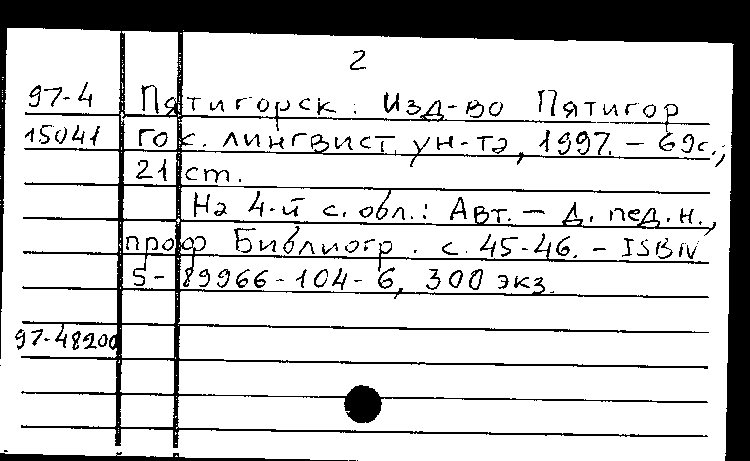 2
97-4 Пятигорск : Изд-во Пятигор
15041 гос. лингвист. ун-та, 1997. – 69с.;
21 ст.
На 4-й с. обл.: Авт. – д. пед. н.,
проф Библиогр. с. 45-46. – ISBN
5-89966-104-6, 300 экз.
97-48200